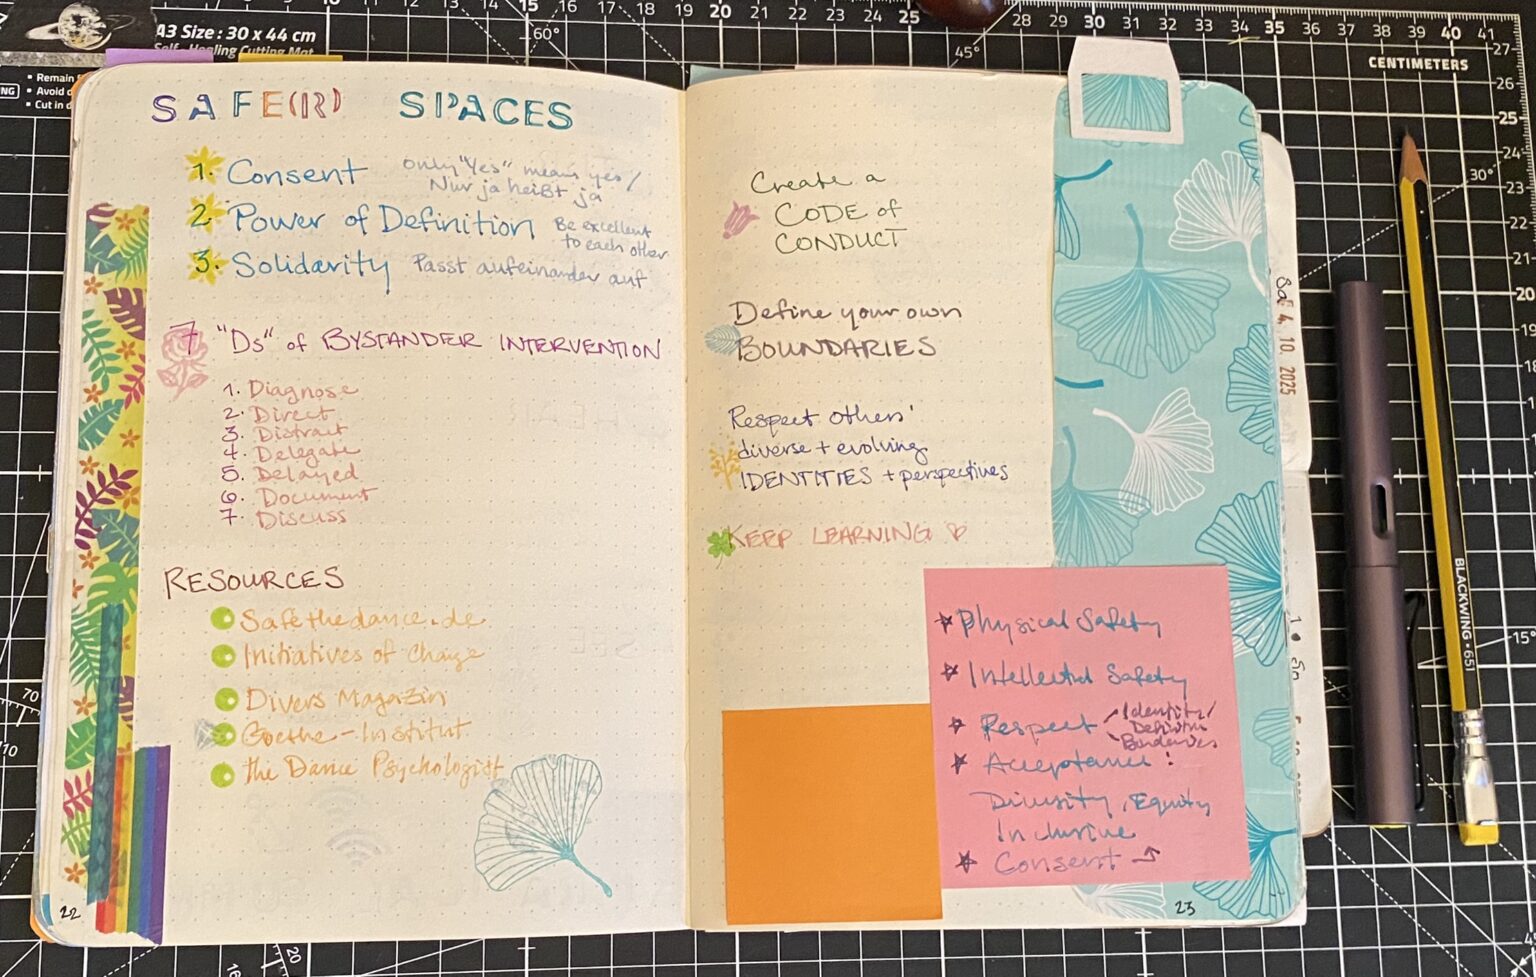 A3 Size : 30 x 44 cm
Self - Healing Cutting Mat
• Remain
• Avoid
• Cut in
15 16 17 18 19 20 21 22 23 24 25 28 29 30 31 32 33 34 35 36 37 38 39 40 41
CENTIMETERS
60°
45°
30°
15°
27
26
25
24
23
22
21
20
19
SAFE(R) SPACES
1. Consent only "Yes" means yes /
Nur ja heißt ja
2. Power of Definition Be excellent
to each other
3. Solidarity Passt aufeinander auf
7 "Ds" of BYSTANDER INTERVENTION
1. Diagnose
2. Direct
3. Distract
4. Delegate
5. Delayed
6. Document
7. Discuss
RESOURCES
Safethedance.de
Initiatives of Change
Divers Magazin
Goethe-Institut
the Dance Psychologist
22
Create a
CODE of
CONDUCT
Define your own
BOUNDARIES
Respect others'
diverse + evolving
IDENTITIES + perspectives
KEEP LEARNING
Physical Safety
Intellectual Safety
Respect Identity/
Definition
Boundaries
Acceptance:
Diversity, Equity
Inclusive
Consent
23
Sa 4. 10. 2025
BLACKWING • 651
70
10
20
16